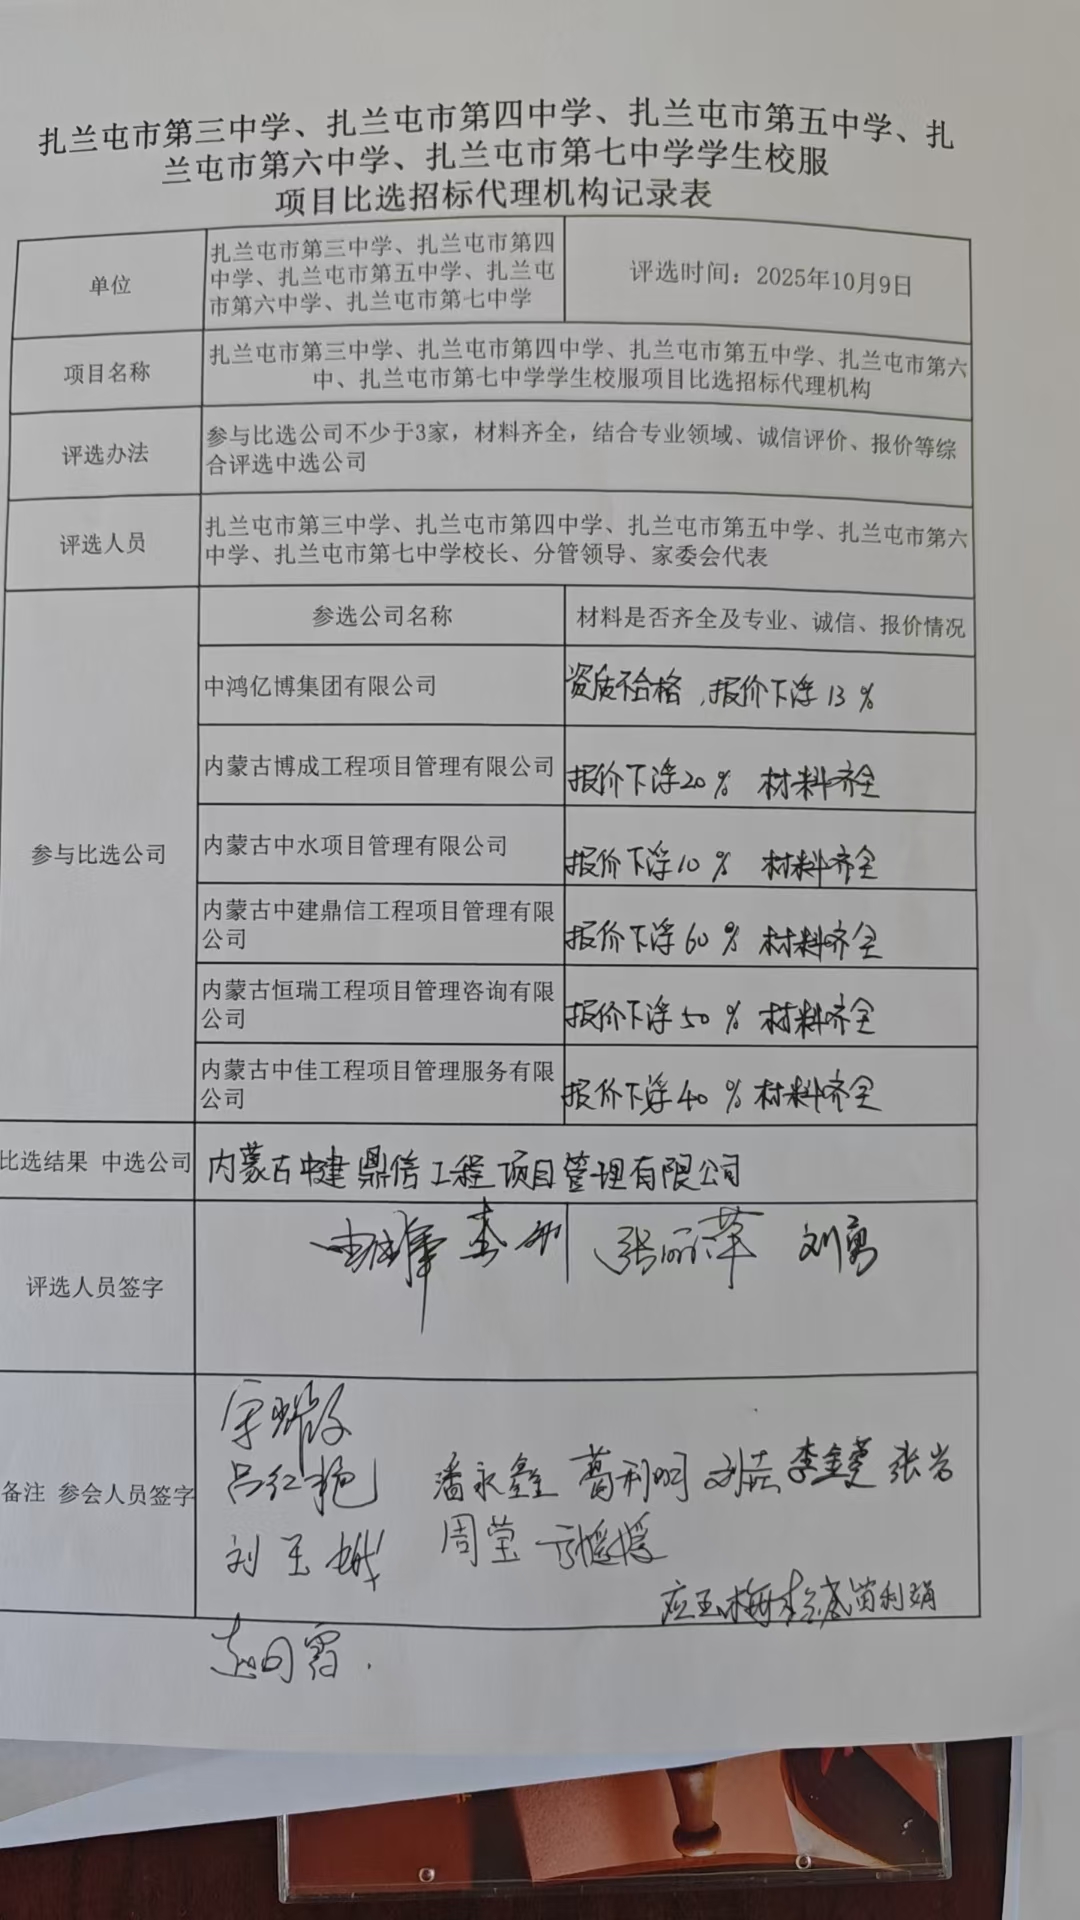 扎兰屯市第三中学、扎兰屯市第四中学、扎兰屯市第五中学、扎
兰屯市第六中学、扎兰屯市第七中学学生校服
项目比选招标代理机构记录表
单位
扎兰屯市第三中学、扎兰屯市第四
中学、扎兰屯市第五中学、扎兰屯
市第六中学、扎兰屯市第七中学
评选时间：2025年10月9日
项目名称
扎兰屯市第三中学、扎兰屯市第四中学、扎兰屯市第五中学、扎兰屯市第六
中、扎兰屯市第七中学学生校服项目比选招标代理机构
评选办法
参与比选公司不少于3家，材料齐全，结合专业领域、诚信评价、报价等综
合评选中选公司
评选人员
扎兰屯市第三中学、扎兰屯市第四中学、扎兰屯市第五中学、扎兰屯市第六
中学、扎兰屯市第七中学校长、分管领导、家委会代表
参与比选公司
参选公司名称
材料是否齐全及专业、诚信、报价情况
中鸿亿博集团有限公司
资质不合格，报价下浮13%
内蒙古博成工程项目管理有限公司
报价下浮20% 材料齐全
内蒙古中水项目管理有限公司
报价下浮10% 材料齐全
内蒙古中建鼎信工程项目管理有限
公司
报价下浮60% 材料齐全
内蒙古恒瑞工程项目管理咨询有限
公司
报价下浮50% 材料齐全
内蒙古中佳工程项目管理服务有限
公司
报价下浮40% 材料齐全
比选结果 中选公司
内蒙古中建鼎信工程项目管理有限公司
评选人员签字
张丽萍 刘勇
备注 参会人员签字
吕红艳
潘永鑫 葛利明 刘喆 李金蔓 张岩
刘玉娥
周莹
应玉梅 苗利娟